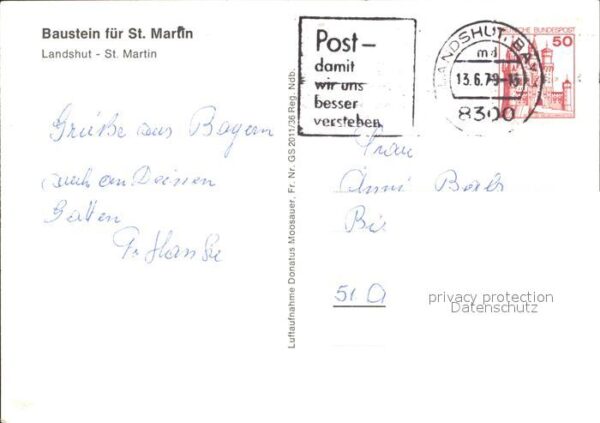 Baustein für St. Martin
Landshut - St. Martin
Grüße aus Bayern
auch an Deinen
Gatten
Fr. Hanke
Luftaufnahme Donatus Moosauer, Fr. Nr. GS 2011/36 Reg. Ndb.
Post-
damit
wir uns
besser
verstehen
LANDSHUT, BAY
md
13.6.79-15
8300
DEUTSCHE BUNDESPOST
50
Frau
Anni
51
privacy protection
Datenschutz